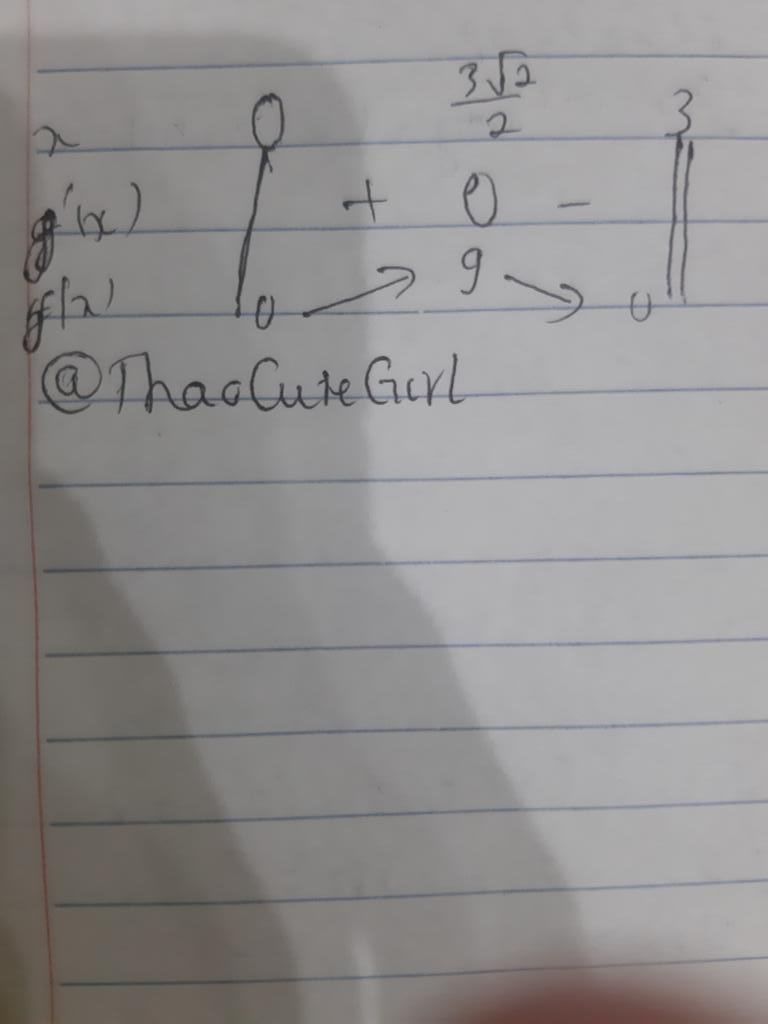 x 0 3√2/2 3
g'(x) + 0 -
f(x) 0 → 9 → 0
@ThaoCuteGirl